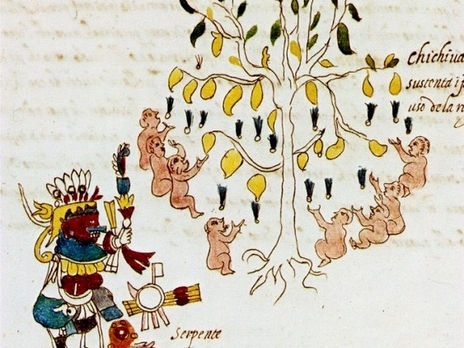 chichiua
sustenta i p
uso de la n
Serpente